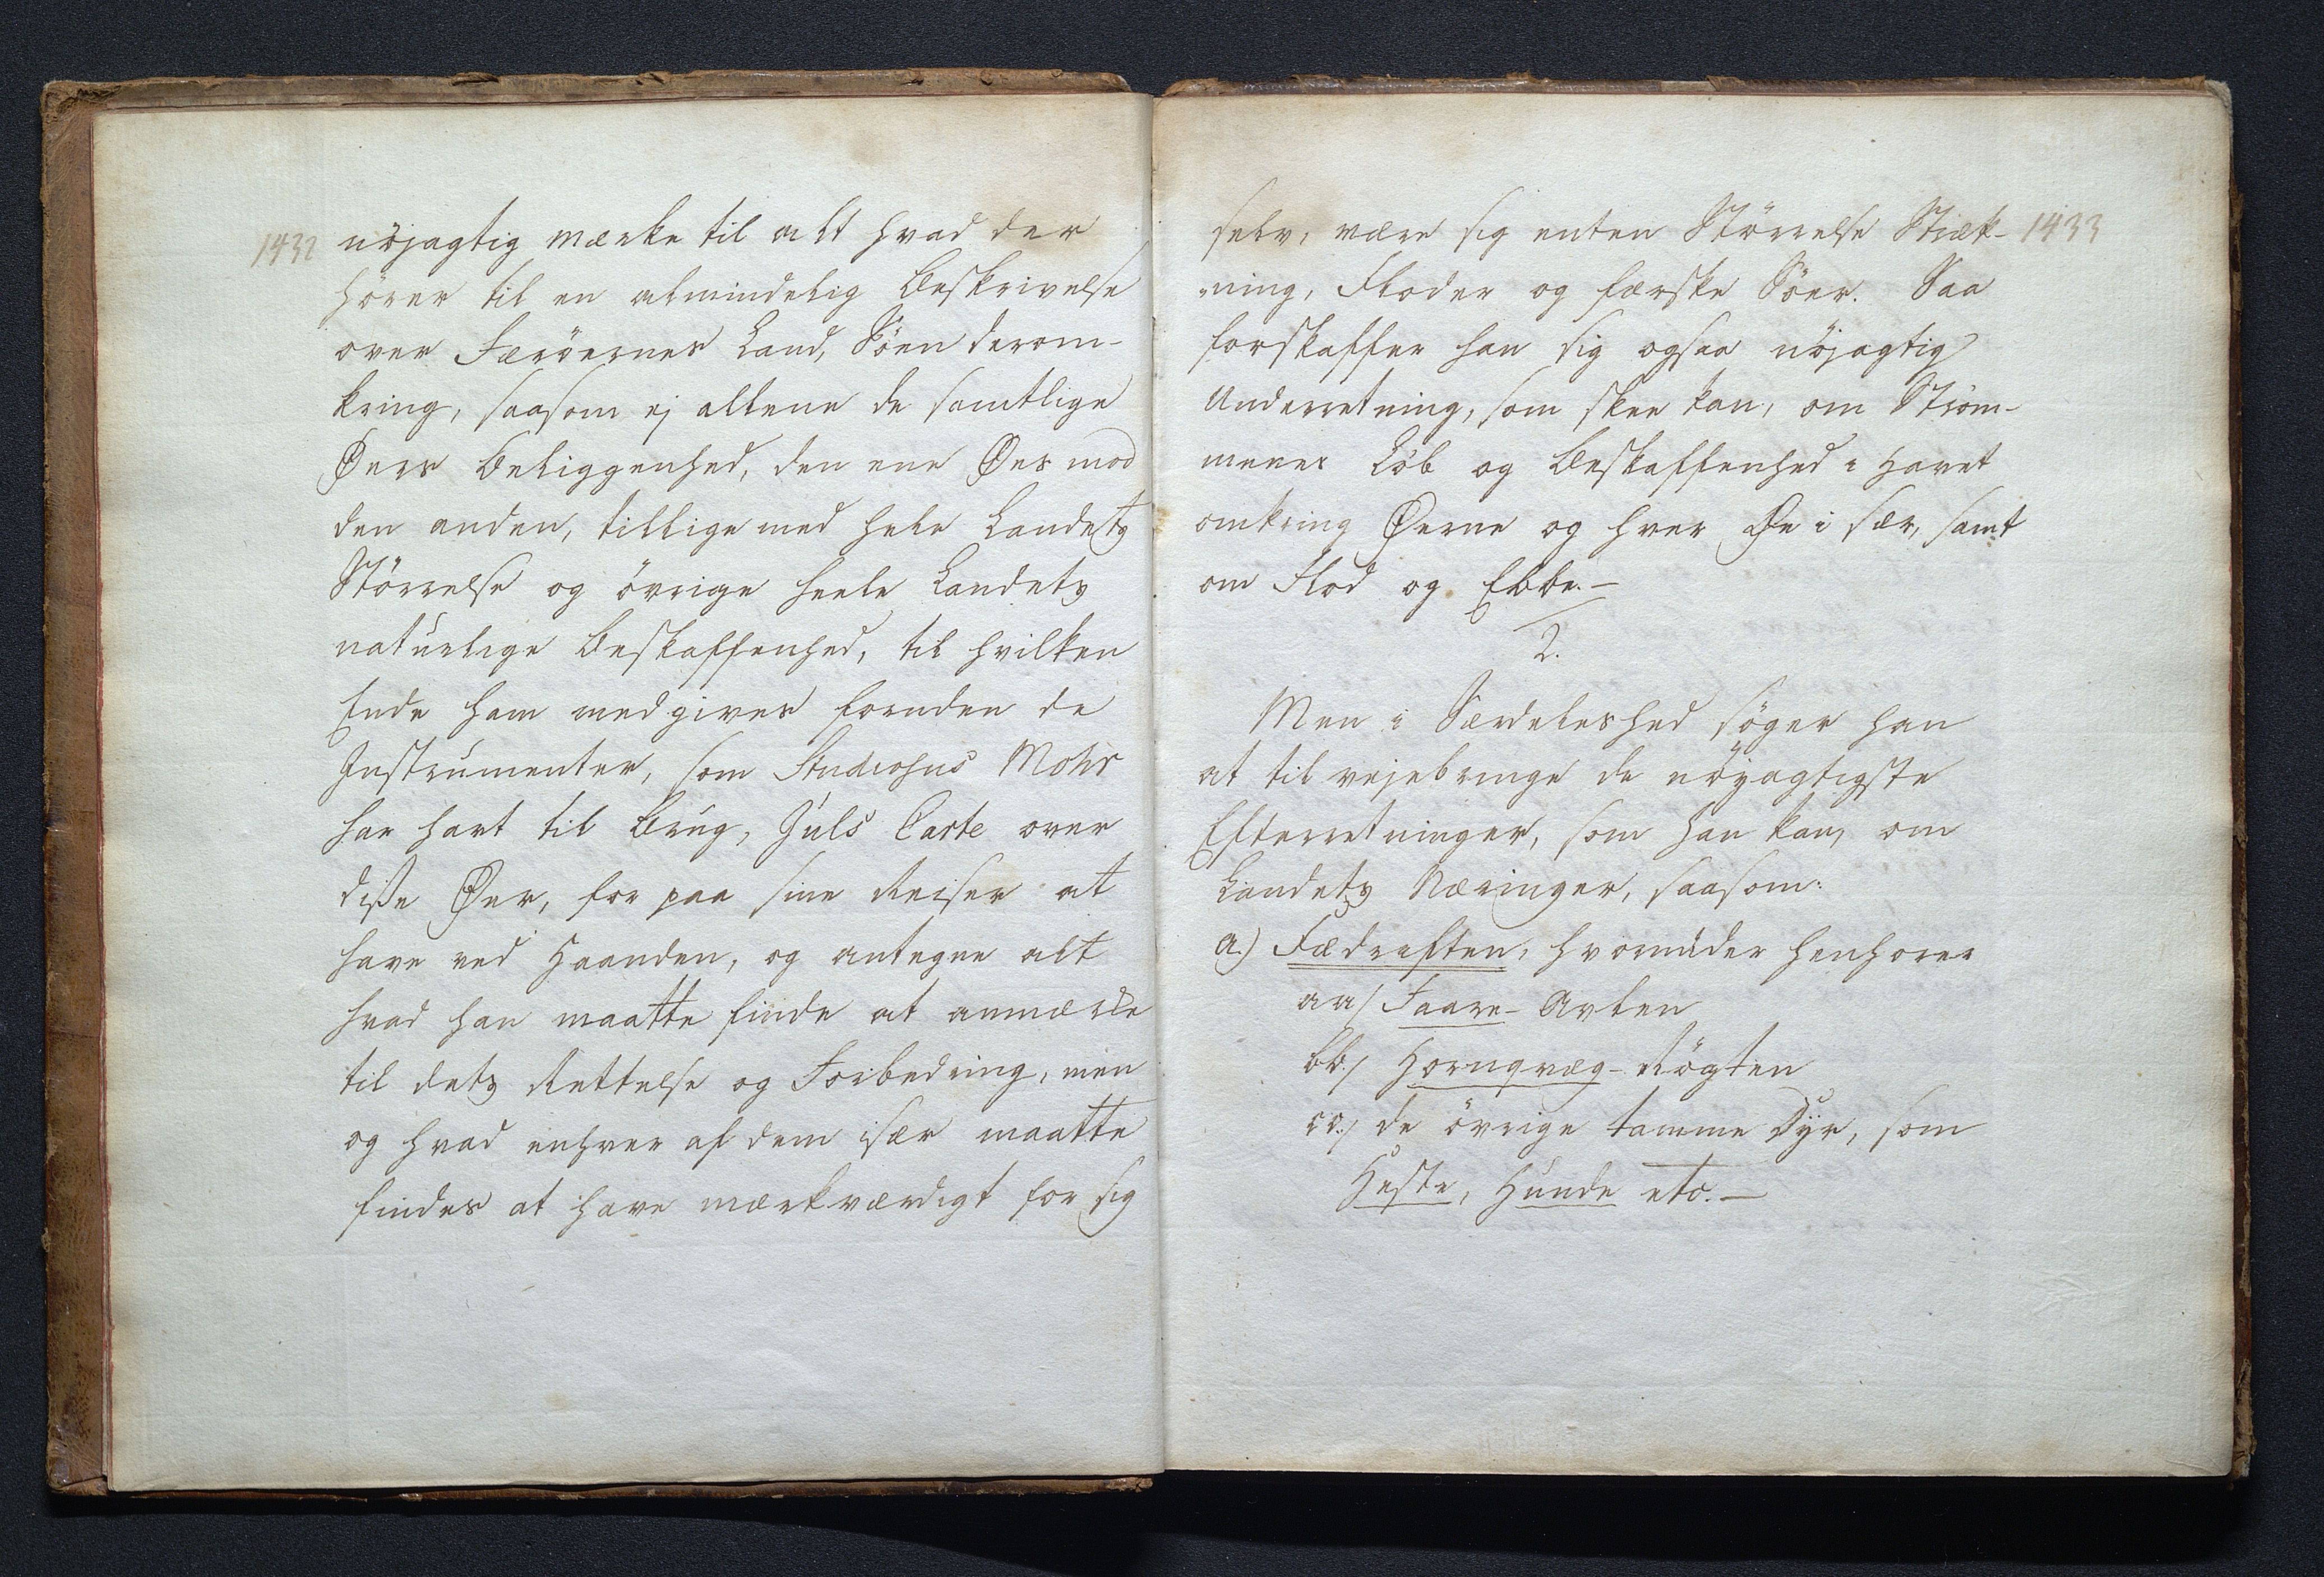 1432
nöjagtig mærke til alt hvad der
hörer til en almindelig Beskrivelse
over Færöernes Land, Söen derom-
kring, saasom ej allene de samtlige
Øers Beliggenhed, den ene Øes mod
den anden, tillige med hele Landets
Störrelse og övrige heele Landets
naturlige Beskaffenhed, til hvilken
Ende ham medgives foruden de
Instrumenter, som Studiosus Mohr
har havt til Brug, Juls Carte over
disse Øer, for paa sine Reiser at
have ved Haanden, og antegne alt
hvad han maatte finde at anmærke
til dets Rettelse og Forbedring, men
og hvad enhver af dem især maatte
findes at have mærkværdigt for sig
1433
selv, være sig enten Störrelse Stræk-
ning, Floder og færske Söer. Saa
forskaffer han sig ogsaa nöjagtig
Underretning, som skee kan, om Ström-
menes Löb og Beskaffenhed i Havet
omkring Øerne og hver Øe i sær, samt
om Flod og Ebbe.-
2.
Men i Særdeleshed söger han
at til vejebringe de nöyagtigste
Efterretninger, som han kan, om
Landets Næringer, saasom:
a.) Fædriften, hvorunder henhorer
aa/ Faare-Avlen
bb./ Hornqvæg-Rögten
cc./ de övrige tamme Dyr, som
Heste, Hunde etc.-